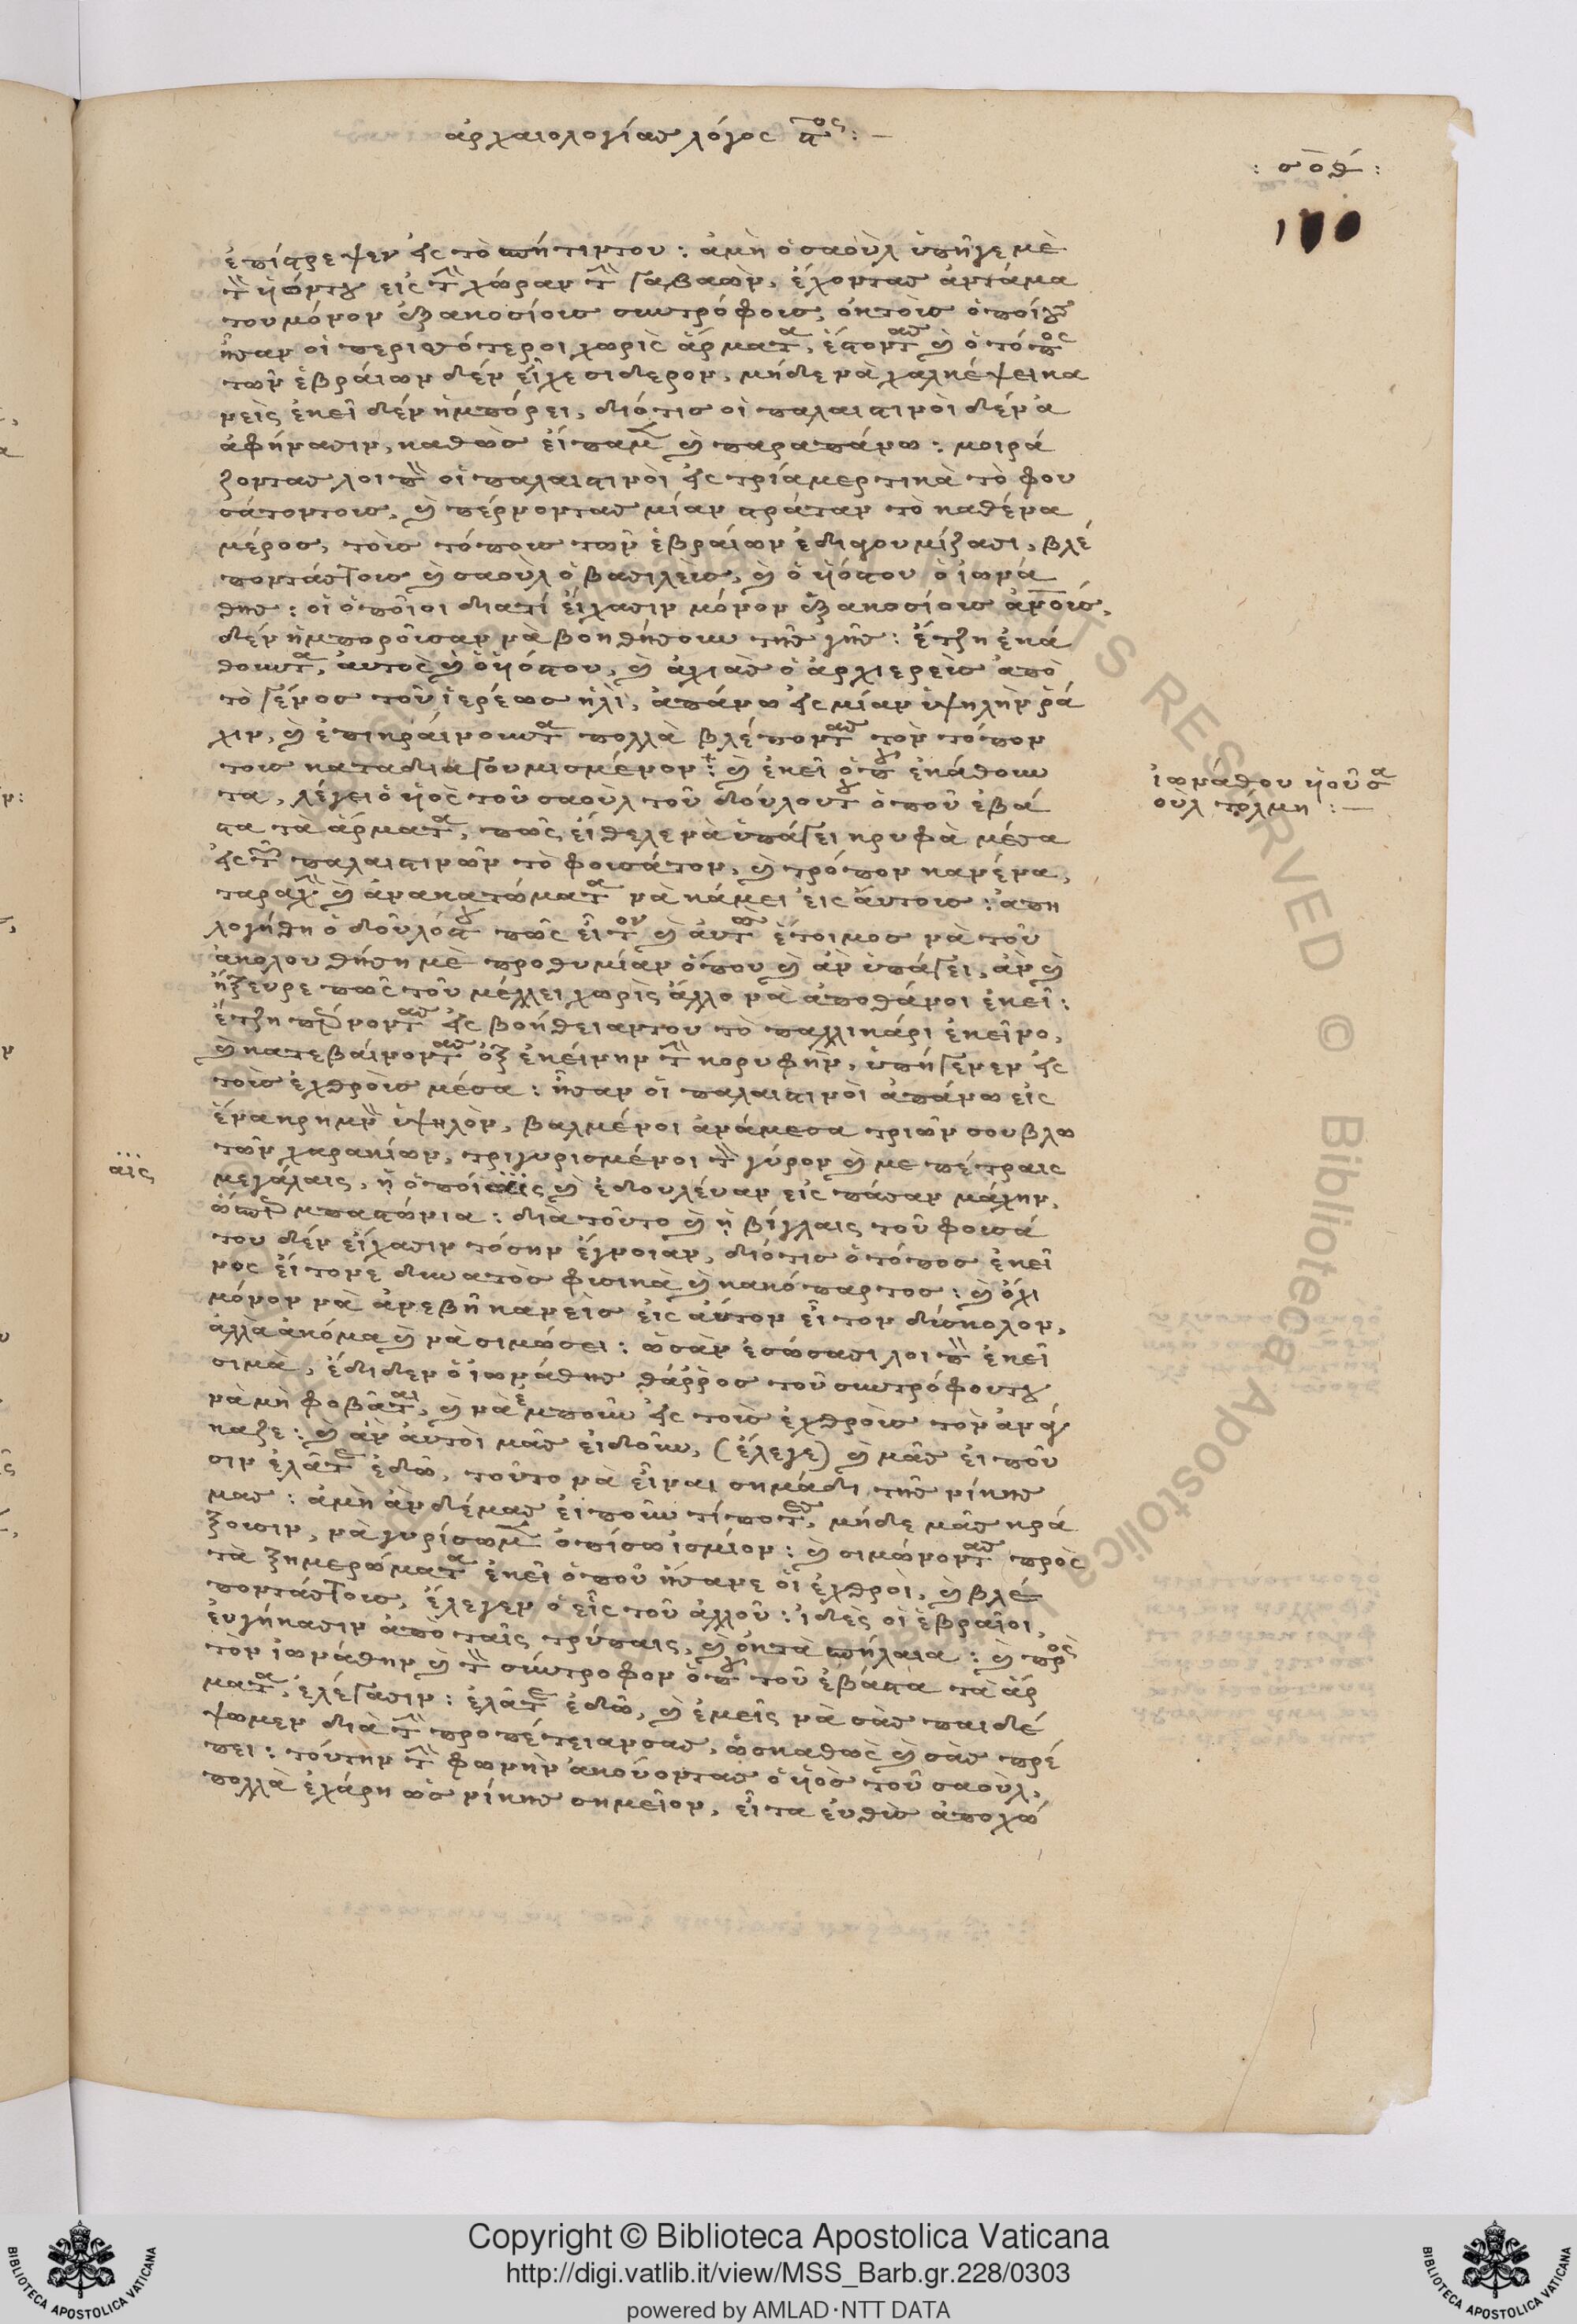 ἀρχαιολογίας λόγος ϛ ος : —
: σοθ :
ἐπίστρεψεν εἰς τὸ σπήτιντου : ἀμὴ ὁ σαοὺλ ὑπῆγε μὲ
τὸν ὑιόντου εἰς τὴν χώραν τὴν γαβαὼν, ἔχοντας ἀντάμα
του μόνον ἑξακοσίους συντρόφους, ἐκ τοὺς ὁποίους
ἦσαν οἱ περισσότεροι χωρὶς ἄρματα, ἔστοντας καὶ ὁ τόπος
τῶν ἑβράιων δὲν εἶχε σίδερον, μήδε νὰ χαλκέψει κα
νεὶς ἐκεῖ δὲν ἠμπόρει, διότις οἱ παλαιστινοὶ δὲν ἀ
ἀφήνασιν, καθὼς εἴπαμεν καὶ παραπάνω : μοιρά
ζοντας λοιπὸν οἱ παλαιστινοὶ εἰς τρία μερτικὰ τὸ φου
σάτοντους, καὶ πέρνοντας μίαν στράταν τὸ καθένα
μέρος, τοὺς τόπους τῶν ἑβραίων ἐδιαγουμίζασι, βλέ
ποντάς τους καὶ σαοὺλ ὁ βασιλεὺς, καὶ ὁ ὑιόςτου ὁ ἰωνά
θης : οἱ ὁποῖοι διατί εἴχασιν μόνον ἑξακοσίους ἀνοὺς,
δὲν ἠμποροῦσαν νὰ βοηθήσουν τῆς γῆς : ἔτζη ἐκά
θουντα, ἀυτὸς καὶ ὁ ὑιόςτου, καὶ ἀχιὰς ὁ ἀρχιερεὺς ἀπὸ
τὸ γένος τοῦ ἱερέως ἠλὶ, ἀπάνω εἰς μίαν ὑψηλὴν ῥά
χιν, καὶ ἐπικράινουντα πολλὰ βλέποντας τὸν τόπον
τους καταδιαγουμισμένον : καὶ ἐκεῖ ὁποῦ ἐκάθουν
τα, λέγει ὁ ὑιὸς τοῦ σαοὺλ τοῦ δούλουτου ὁποῦ ἐβά
στα τὰ ἄρματα, πῶς εἴθελε νὰ ὑπάγει κρυφὰ μέσα
εἰς τῶν παλαιστινῶν τὸ φουσάτον, καὶ τρόπον κανένα,
ταραχὴν καὶ ἀνακατώματα νὰ κάμει εἰς ἀυτους : ἀπη
λογήθη ὁ δοῦλόςτου πῶς εἶτον καὶ ἀυτὸς ἕτοιμος νὰ τοῦ
ἀκολουθήση μὲ προθυμίαν ὅπου καὶ ἂν ὑπάγει, ἂν καὶ
ἤξευρε πῶς τοῦ μέλλει χωρὶς ἄλλο νὰ ἀποθάνοι ἐκεῖ :
ἔτζη πέρνοντας εἰς βοήθειαντου τὸ παλλικάρι ἐκεῖνο,
καὶ κατεβαίνοντας ἐξ ἐκείνην τὴν κορυφὴν, ὑπήγενεν εἰς
τοὺς ἐχθροὺς μέσα : ἦσαν οἱ παλαιστινοὶ ἀπάνω εἰς
ἕνα κρημνὸν ὑψηλὸν, βαλμένοι ἀνάμεσα τριῶν σουβλω
τῶν χαρακίων, τριγυρισμένοι τὸν γύρον καὶ με πέτραις
μεγάλαις, ἡ ὁποίαις καὶ ἐδουλέυαν εἰς πάσαν μάχην,
ὡσπερ μπαστιώνια : διὰ τοῦτο καὶ ἡ βίγλαις τοῦ φουσά
του δὲν εἴχασιν τόσην ἔγνοιαν, διότις ὁ τόπος ἐκεῖ
νος εἴτονε δυνατὸς φυσικὰ καὶ κακόπαρτος : καὶ ὄχι
μόνον νὰ ἀνεβῆ κανεὶς εἰς ἀυτον εἶτον δύσκολον,
ἀλλὰ ἀκόμα καὶ νὰ σιμώσει : ὡσὰν ἐσώσασι λοιπὸν ἐκεῖ
σιμὰ, ἔδιδεν ὁ ἰωνάθης θάῤῥος τοῦ συντρόφουτου
νὰ μὴ φοβᾶται, καὶ νὰ ἐμποῦν εἰς τοὺς ἐχθροὺς τὸν ἀνάγ
καζε : καὶ ἂν ἀυτοὶ μᾶς εἰδοῦν, (ἔλεγε) καὶ μᾶς εἰποῦ
σιν ἐλᾶτε ἐδῶ, τοῦτο νὰ εἶναι σημάδι τῆς νίκης
μας : ἀμὴ ἂν δέμας εἰποῦν τίποτες, μήδε μᾶς κρά
ξουσιν, νὰ γυρίσωμεν ὀπίσω ἰσμίον : καὶ σιμώνοντας πρὸς
τὰ ξημερώματα ἐκεῖ ὁποῦ ἤσανε ὁι ἐχθροὶ, καὶ βλέ
ποντάς τους, ἔλεγεν ὁ εἷς τοῦ ἀλλοῦ : ἰδὲς οἱ ἑβραῖοι,
ἐυγήκασιν ἀπὸ ταῖς τρύπαις, καὶ ἐκ τὰ σπήλαια : καὶ πρὸς
τὸν ἰωνάθην καὶ τὸν σύντροφον ὁποῦ τοῦ ἐβάστα τὰ ἄρ
ματα, ἐλέγασιν : ἐλᾶτε ἐδῶ, καὶ ἐμεῖς νὰ σᾶς παιδέ
ψωμεν διὰ τὴν προπέτειανσας, ὡσκαθὼς καὶ σᾶς πρέ
πει : τούτην τὴν φωνὴν ἀκούοντας ὁ ὑιὸς τοῦ σαοὺλ,
πολλὰ ἐχάρη ὡς νίκης σημεῖον, εἶτα ἐυθὺς ἀποχώ
ἰωνάθου ὑιοῦ σα
οὺλ τόλμη : —
αις
Copyright © Biblioteca Apostolica Vaticana
http://digi.vatlib.it/view/MSS_Barb.gr.228/0303
powered by AMLAD·NTT DATA
BIBLIOTECA APOSTOLICA VATICANA
BIBLIOTECA APOSTOLICA VATICANA